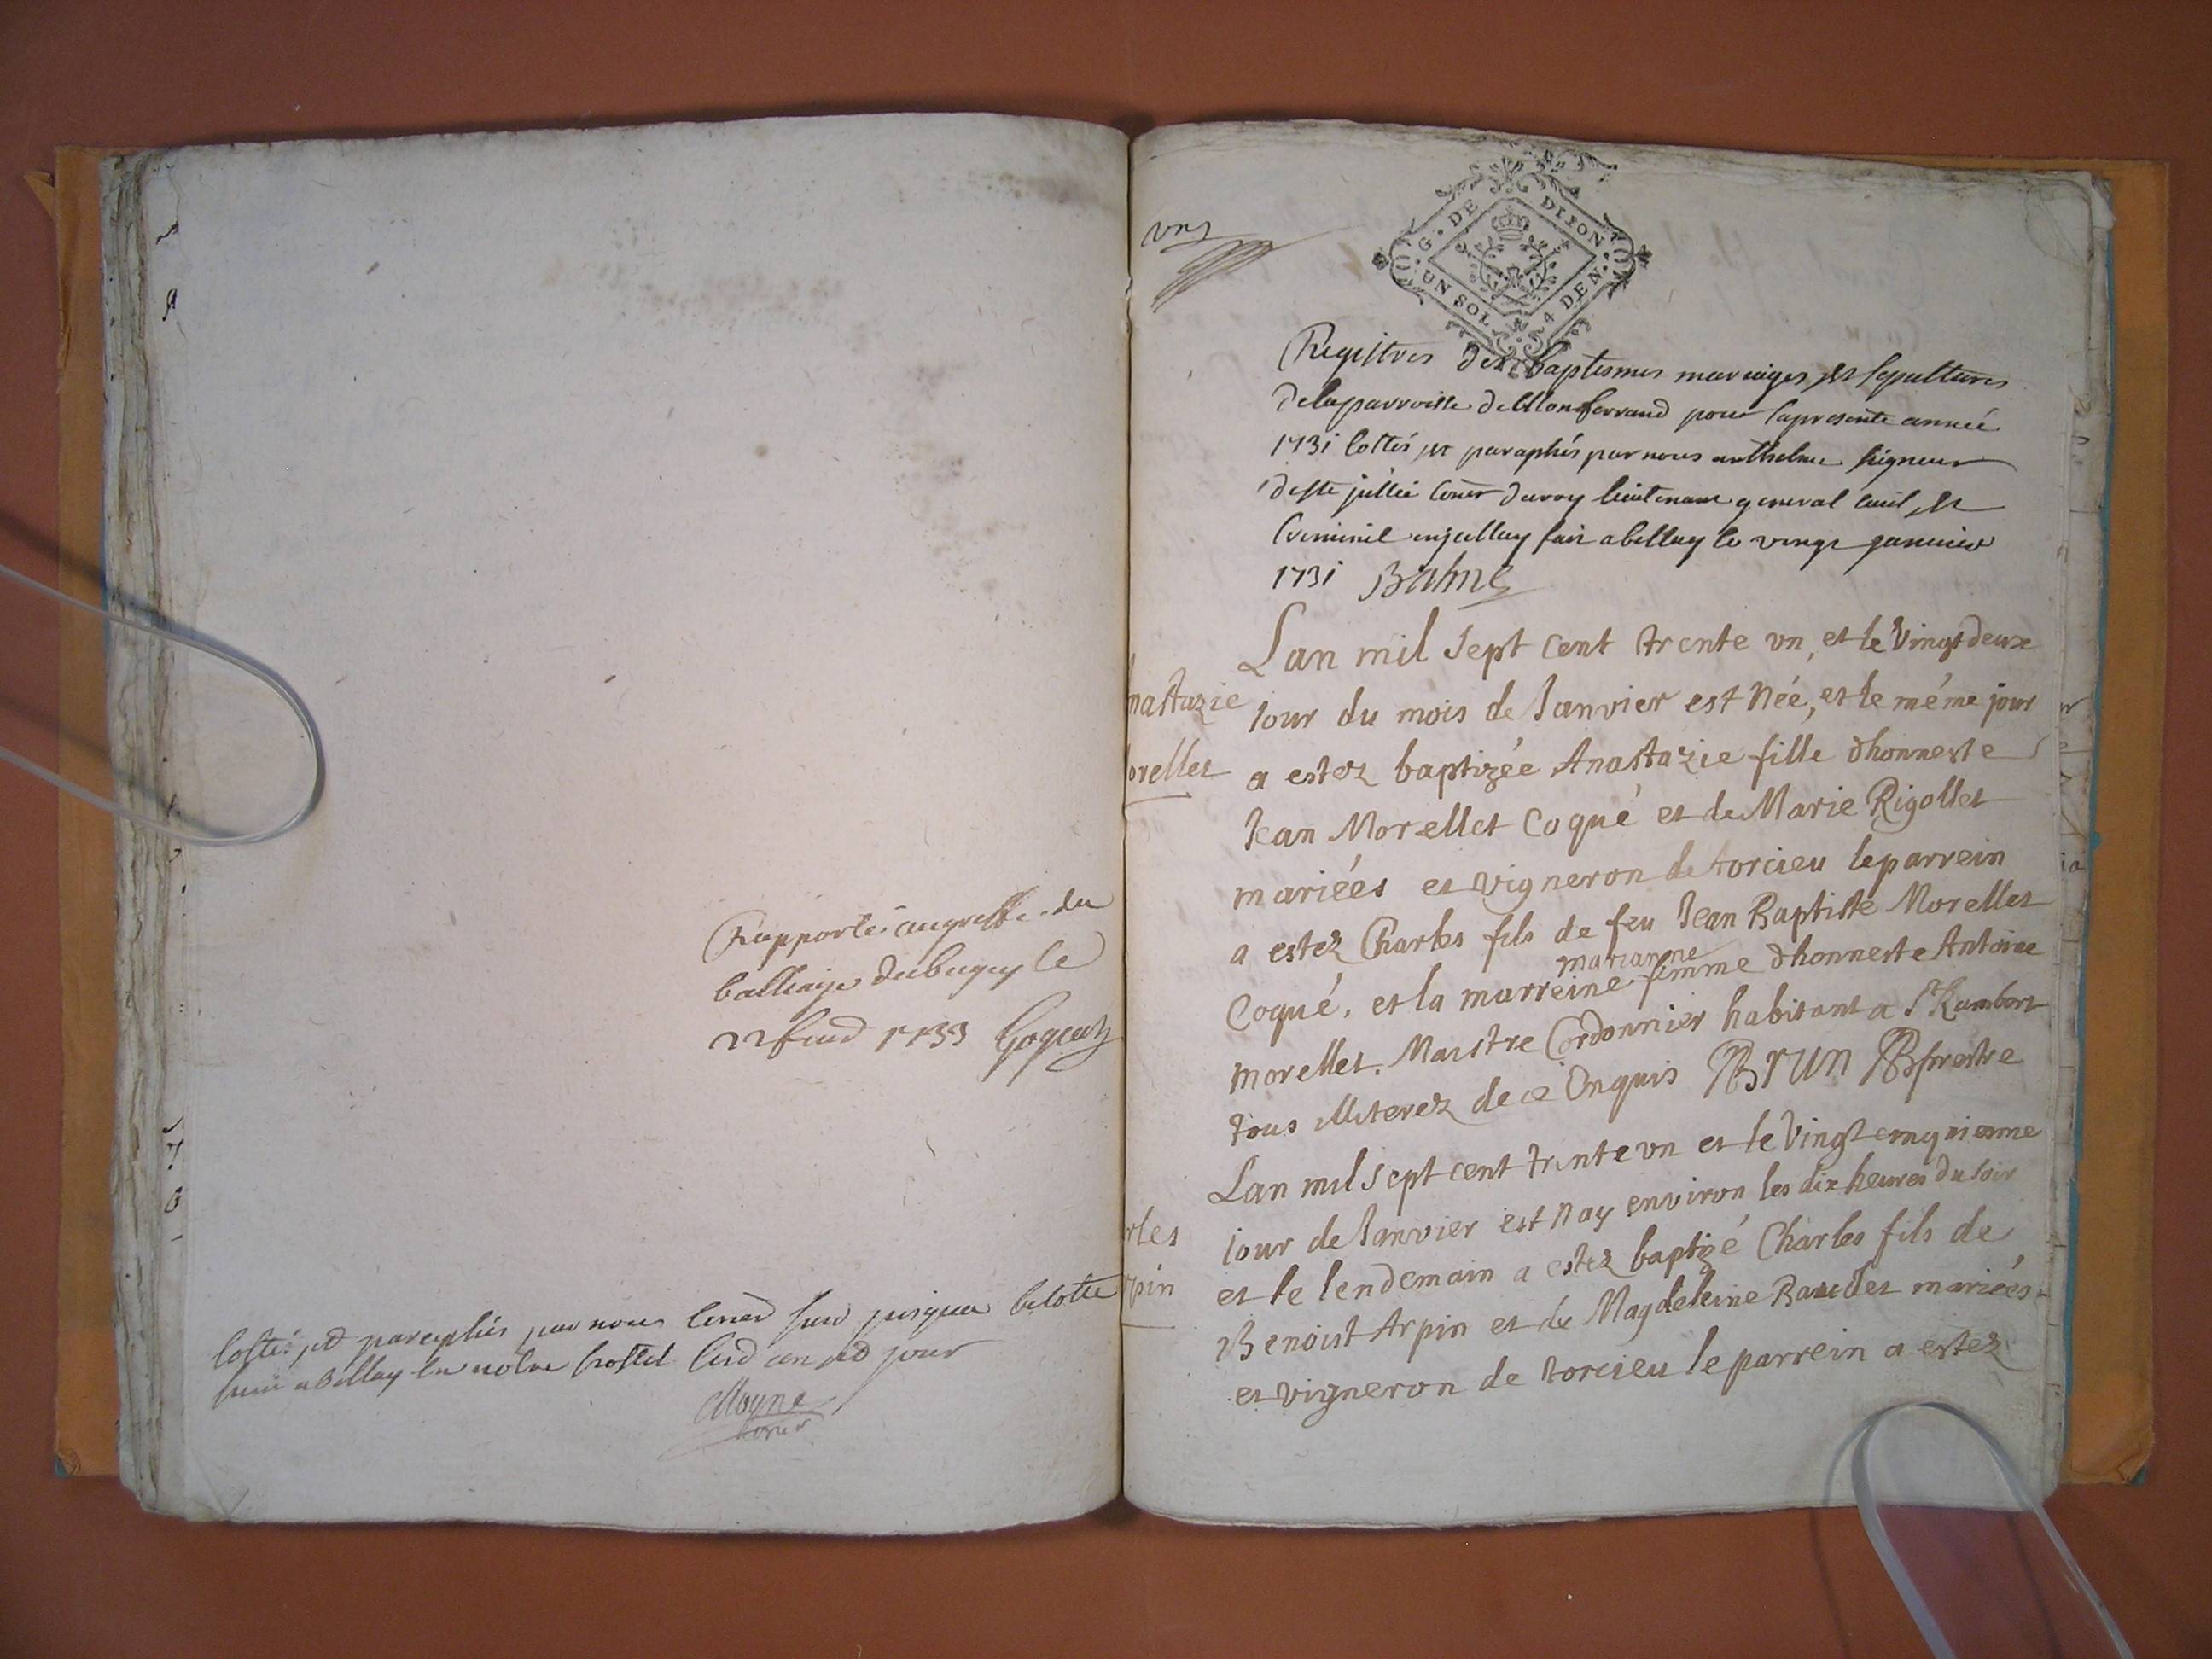 Rapporté au greffe du
balliage du bugey le
22 1733
Cottés et paraphés par nous jusqua
abellay en notre hostel an et jour
vn
G. DE DIJON
UN SOL 4 DEN.
Registres des baptesmes mariages et sepultures
de la parroisse de Monferrand pour la presente année
1731 Cottés et paraphés par nous anthelme
lieutenant general Ciuil et
Criminel fait a bellay le vingt januier
1731 Balme
nastazie
orellet
Lan mil sept cent trente vn, et le vingtdeux
Iour du mois de Ianvier est Née, et le méme jour
a estez baptizée Anastazie fille dhonneste
Iean Morellet Coqué et de Marie Rigollet
mariées et vigneron de torcieu le parrein
a estez Charles fils de feu Iean Baptiste Morellet
Coqué, et la marreine marianne femme dhonneste Antoine
Morellet. Maistre Cordonnier habitant a St Rambert
tous illiterez de ce Enquis Brun prestre
rles
rpin
Lan mil sept cent trente vn et le Vingt cinquiesme
iour de Ianvier est Nay environ les dix heures du soir
et le lendemain a estez baptizé Charles fils de
Benoist Arpin et de Magdeleine mariées
et vigneron de torcieu le parrein a estez